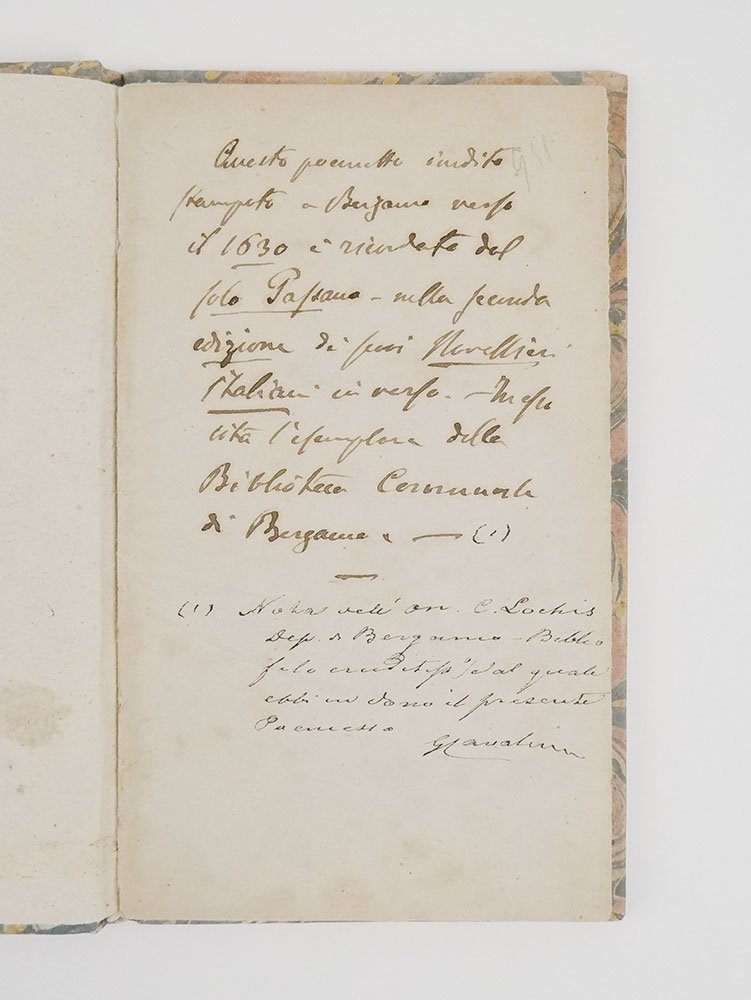 Questo poemetto inedito
stampato a Bergamo verso
il 1630 è ricordato dal
solo Passano - nella seconda
edizione di suoi Novellieri
Italiani in verso. - In essa
cita l'esemplare della
Biblioteca Comunale
di Bergamo. — (1)
(1) Nota dell' on. C. Lochis
Dep. di Bergamo - Biblio
filo eruditiss° dal quale
ebbi in dono il presente
Poemetto